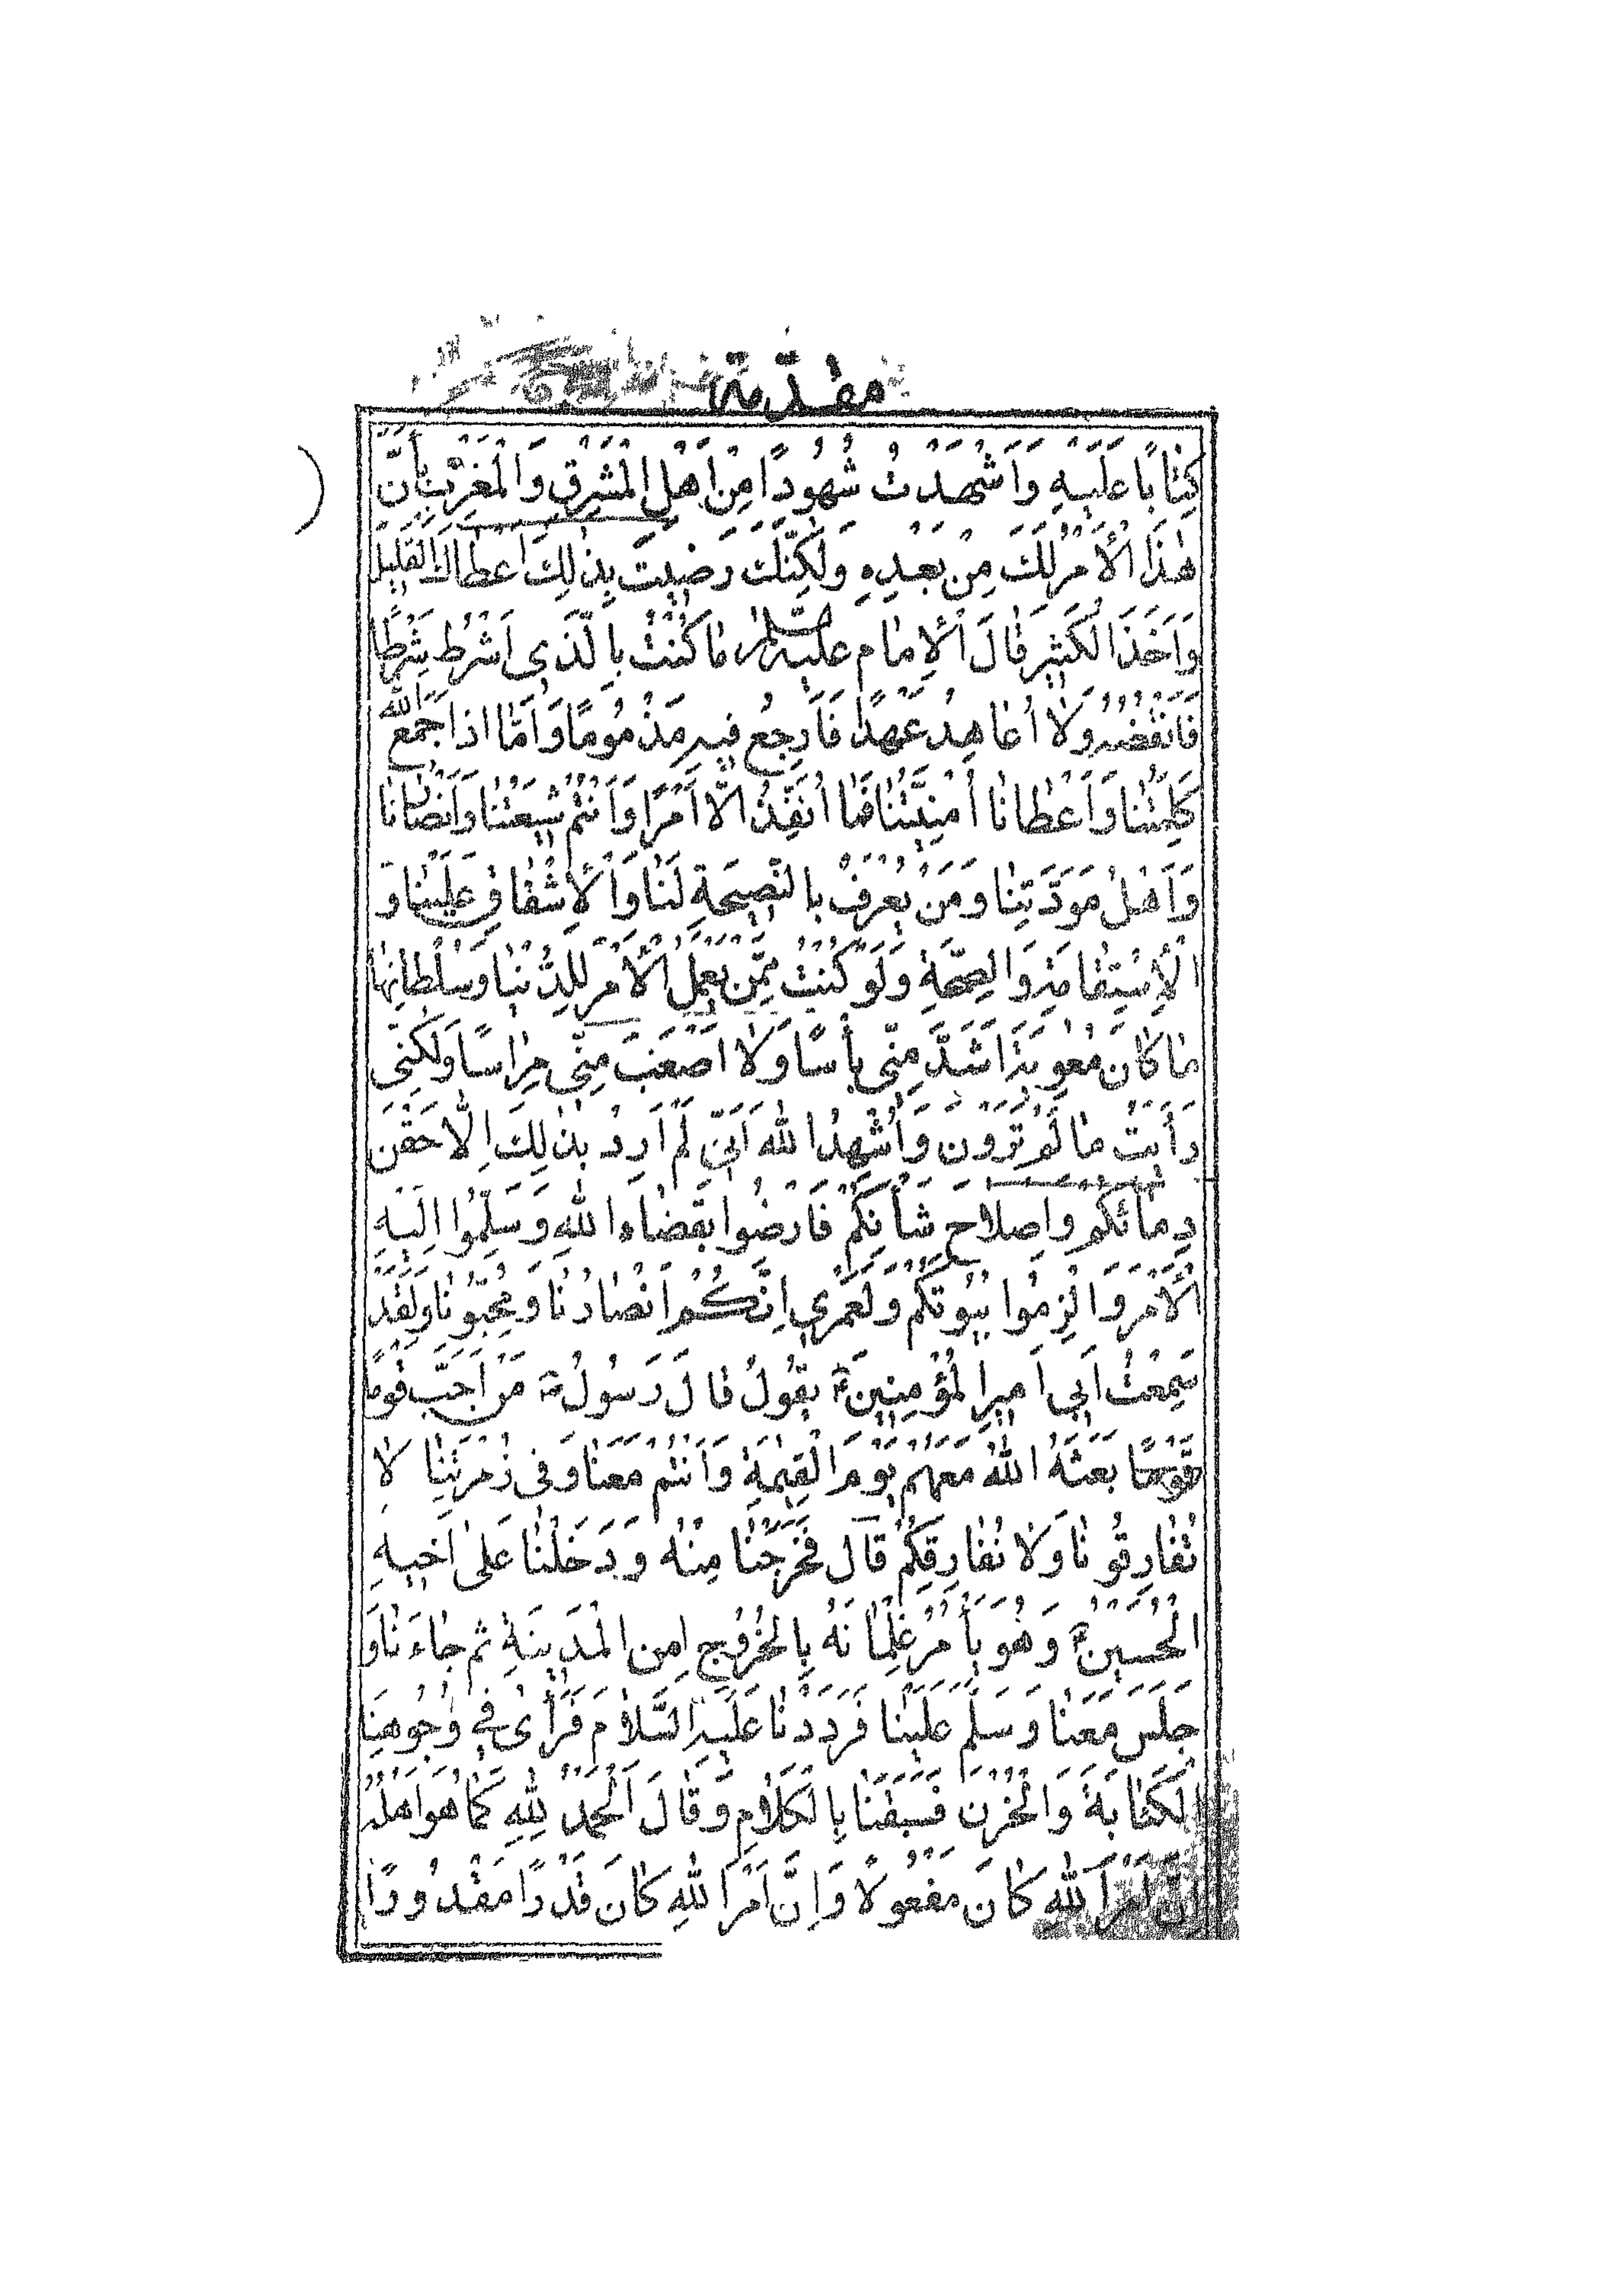 مقدّمة
كِتٰابًا عَلَيْهِ وَاَشْهَدْتُ شُهُودًا مِنْ اَهْلِ الْمَشْرِقِ وَالْمَغْرِبِ بِأَنَّ
هٰذَا الْأَمْرَ لَكَ مِنْ بَعْدِهِ وَلٰكِنَّكَ رَضِيتَ بِذٰلِكَ اَعْطٰاكَ الْقَلِيلَ
وَاَخَذَ الْكَثِيرَ قٰالَ الْاِمٰام عليه السلام مٰا كُنْتُ بِالَّذِى اَشْرُط شَرْطًا
فَانْقُضُهُ وَلٰا اُعٰاهِدُ عَهْدًا فَاَرْجِعُ فِيهِ مَذْمُومًا وَاَمّٰا اذا جَمَعَ اللّٰه
كَلِمَتَنٰا وَاَعْطٰانٰا اُمْنِيَّتَنٰا فَمٰا اُنَفِّذُ الّٰا اَمْرًا وَاَنْتُمْ شِيعَتُنٰا وَاَنْصٰارُنٰا
وَاَهْلُ مَوَدَّتِنٰا وَمَنْ يُعْرَفُ بِالنَّصِيحَةِ لَنٰا وَالْاِشْفٰاقِ عَلَيْنٰا وَ
الْاِسْتِقٰامَةِ وَالصِّحَّةِ وَلَوْ كُنْتُ مِمَّنْ يَعْمَلُ الْأَمْرَ لِلدُّنْيٰا وَسُلْطٰانِهٰا
مٰا كٰانَ مُعٰوِيَةُ اَشَدَّ مِنّى بأْسًا وَلٰا اَصْعَبَ مِنّى مِرٰاسًا وَلٰكِنّى
رَأَيْتُ مٰا لَمْ تَرَوْنَ وَاُشْهِدُ اللّٰه اَنّى لَمْ اَرِدْ بذٰلِكَ اِلّٰا حَقْنَ
دِمٰائكُم وَاِصلاحَ شَأنِكُمْ فَارْضُوا بِقَضٰاءِ اللّٰهِ وَسَلِّمُوا اِلَيْهِ
الْأَمْرَ وَالْزِمُوا بُيُوتَكُمْ وَلَعَمْرِي اِنَّكُمْ اَنْصٰارُنٰا وَمُحِبُّونٰا وَلَقَدْ
سَمِعْتُ اَبِي اَمِيرَ الْمُؤْمِنِينَ ع يَقُولُ قٰالَ رَسُولُ ص مَنْ اَحَبَّ قَومًا
قَوْمًا بَعَثَهُ اللّٰهُ مَعَهُمْ يَوْمَ الْقِيٰمَةِ وَاَنْتُمْ مَعَنٰا وَفى زُمْرَتِنٰا لٰا
تُفٰارِقُونٰا وَلٰا نُفٰارِقكُمْ قٰال فَخَرَجْنٰا مِنْهُ وَدَخَلْنٰا عَلىٰ اَخِيهِ
الْحُسَيْنِ ع وَهُوَ يَأْمُرُ غِلْمٰانَهُ بِالْخُرُوجِ مِن الْمَدِينَةِ ثم جٰاءَنٰا وَ
جَلَسَ مَعَنٰا وَسَلَّمَ عَلَيْنٰا فَرَدَدْنٰا عَلَيْهِ السَّلٰامَ فَرَأىٰ فِي وُجُوهِنٰا
الْكَئٰابَةَ وَالْحُزْنَ فَسَبَقَنٰا بِالْكَلٰامِ وَقٰالَ اَلْحَمْدُ لِلّٰهِ كَمٰا هُوَ اَهْلُهُ
اِنَّ اَمْرَ اللّٰهِ كٰانَ مَفْعُولًا وَاِنَّ اَمْرَ اللّٰهِ كٰانَ قَدَرًا مَقْدُورًا